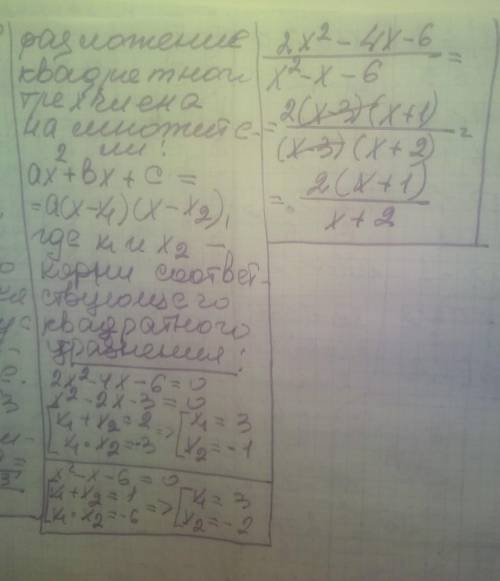 разложение
квадратного
трехчлена
на множите-
ли:
ax²+bx+c=
=a(x-x₁)(x-x₂),
где x₁ и x₂ –
корни соответ-
ствующего
квадратного
уравнения:
2x²-4x-6=0
x²-2x-3=0
[x₁+x₂=2 => [x₁=3
x₁·x₂=-3 x₂=-1
x²-x-6=0
[x₁+x₂=1 => [x₁=3
x₁·x₂=-6 x₂=-2
2x²-4x-6 =
x²-x-6
= 2(x-3)(x+1) =
(x-3)(x+2)
= 2(x+1)
x+2